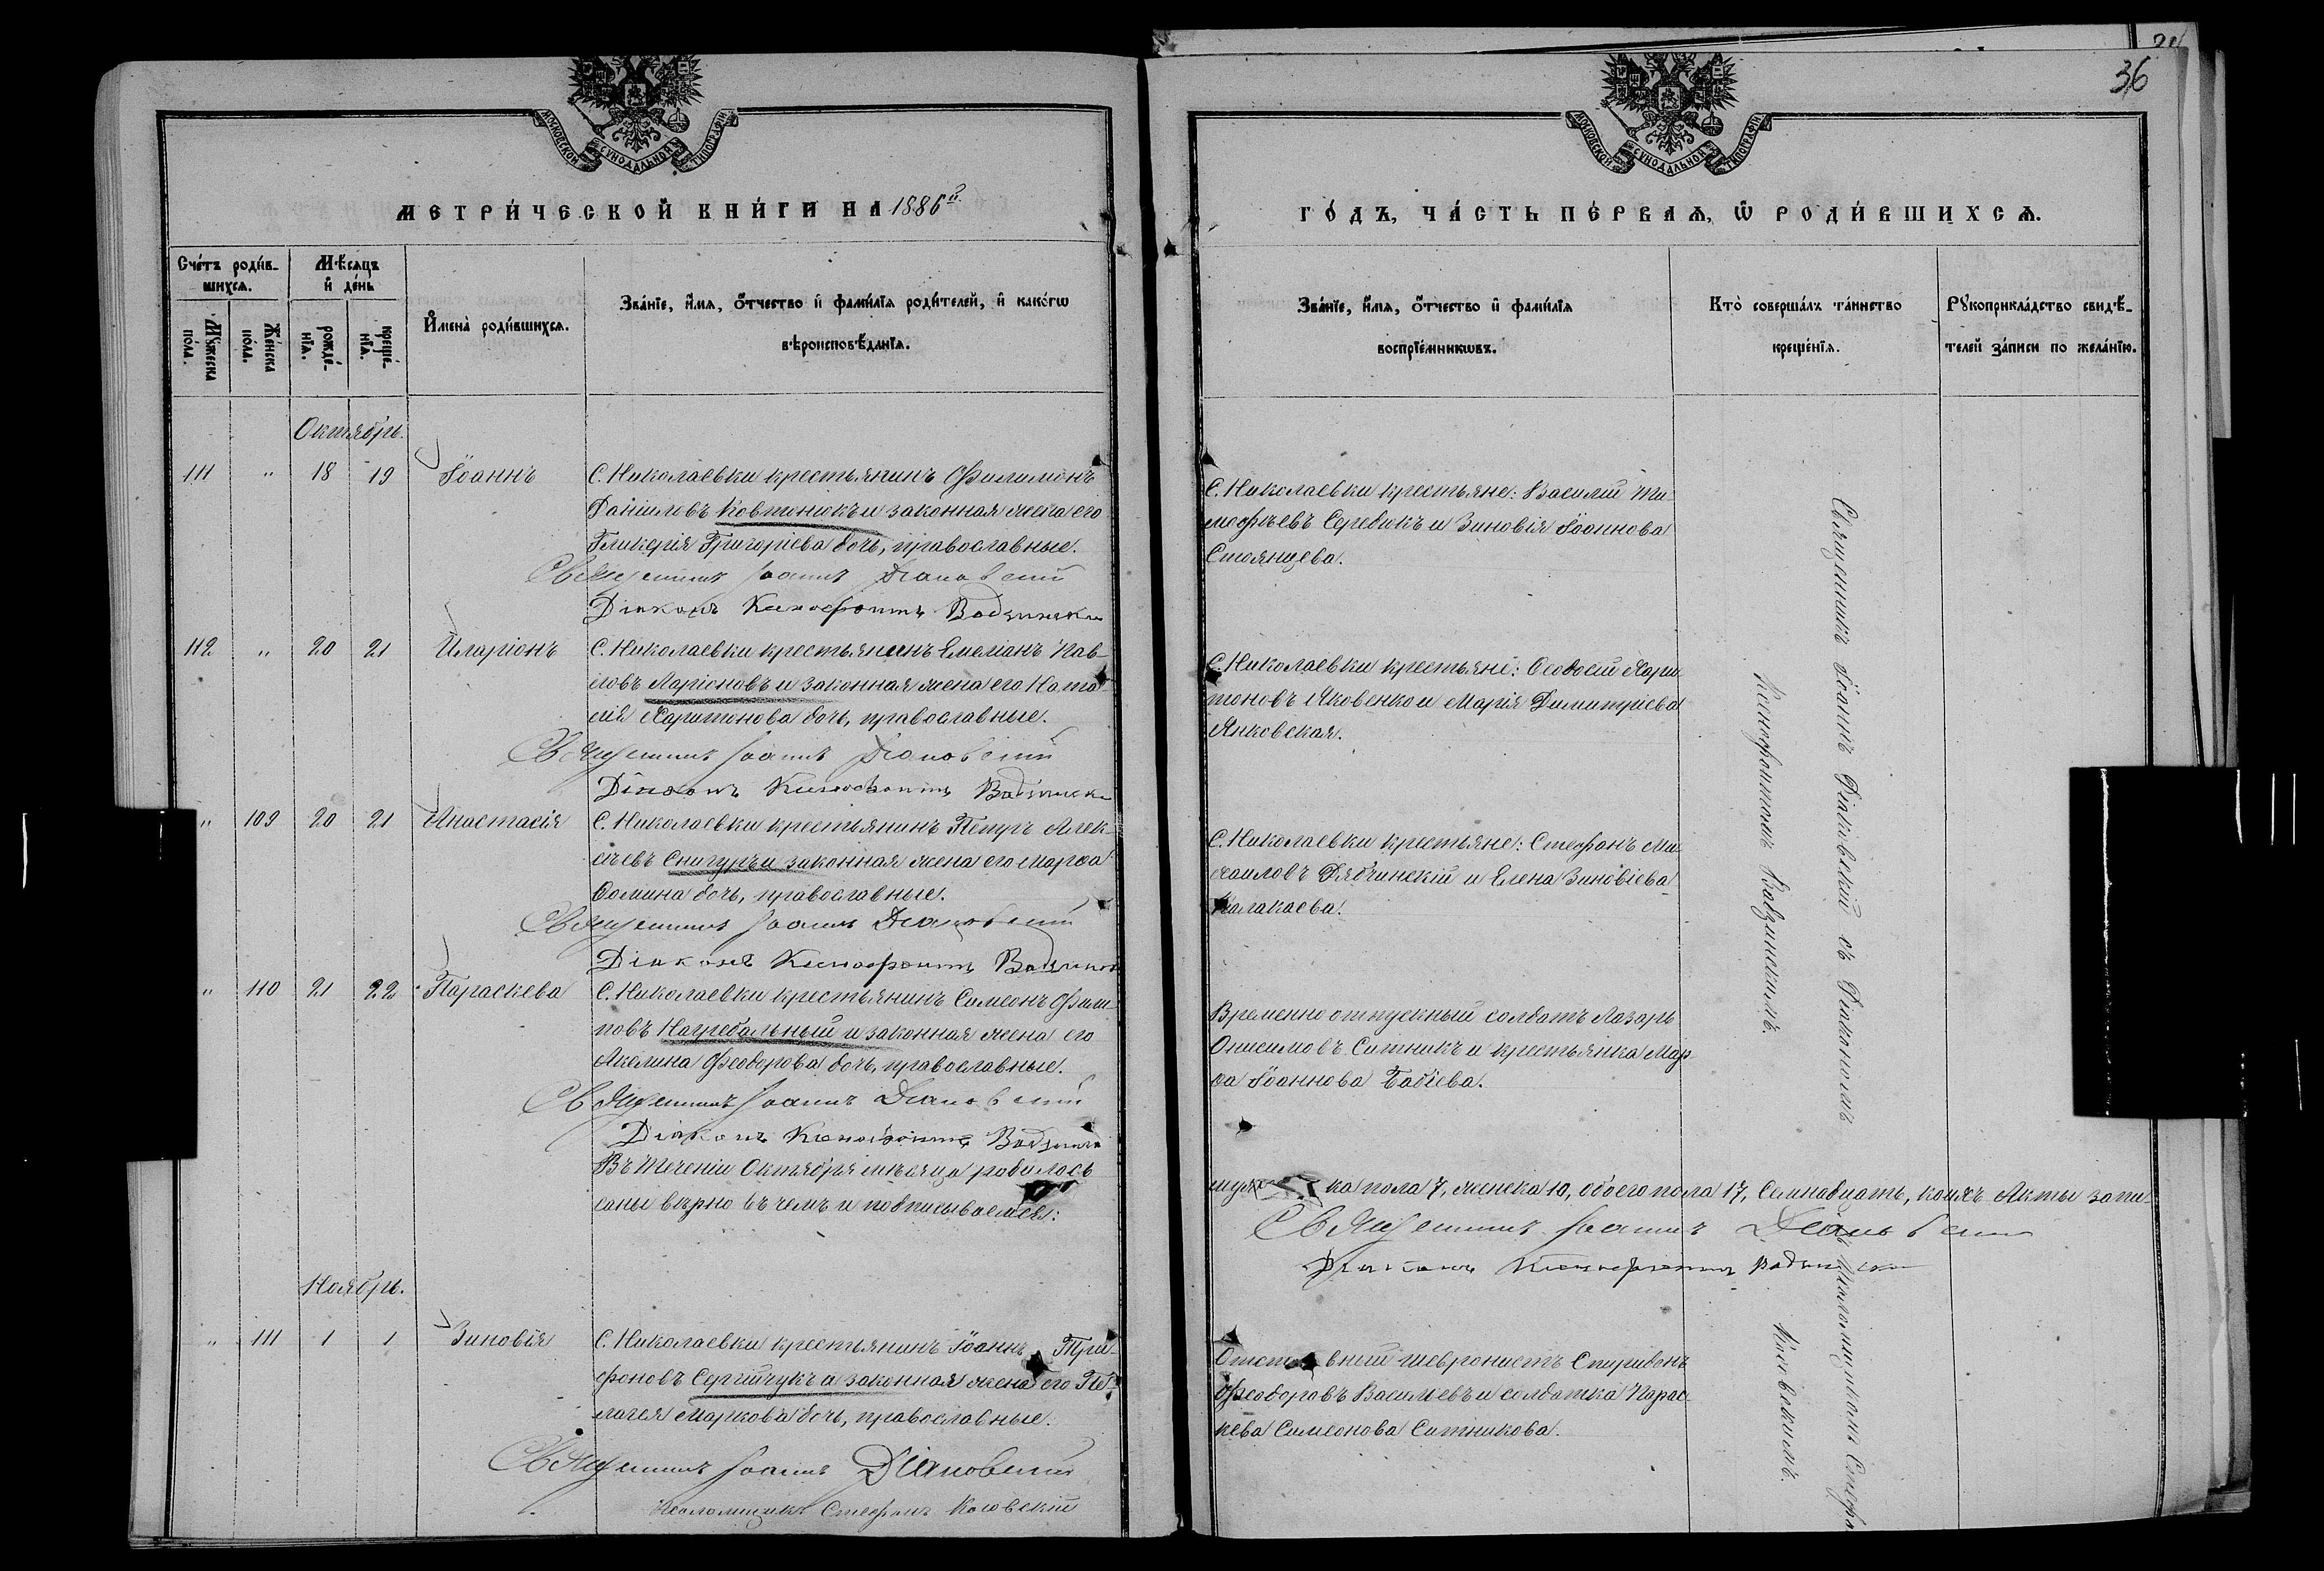 36
МОСКОВСКОЙ СѴНОДАЛЬНОЙ ТИПОГРАФІИ
МЕТРИ́ЧЕСКОЙ КНИ́ГИ НА 1886й
Сче́тъ роди́в-
шихсѧ.
Мѣ́сѧцъ
и҆ де́нь
Мꙋ́жеска
по́ла.
Же́нска
по́ла.
рожде́-
нїѧ.
креще́-
нїѧ.
И҆мена̀ роди́вшихсѧ.
Зва́нїе, и҆́мѧ, ѻ҆́тчество и҆ фами́лїѧ роди́телей, и҆ како́гѡ
вѣроисповѣ́данїѧ.
Октябрь.
111 " 18 19 Іоаннъ
С. Николаевки крестьянинъ Филимонъ
Даніиловъ Ковтонюкъ и законная жена его
Гликерія Григоріева дочь, православные.
Священникъ Іоаннъ Діаковскій
Діаконъ Ксенофонтъ Вадзински
112 " 20 21 Иларіонъ
С. Николаевки крестьянинъ Емеліанъ Пав-
ловъ Ларіоновъ и законная жена его Ната-
лія Харитонова дочь, православные.
Священникъ Іоаннъ Діаковскій
Діаконъ Ксенофонтъ Вадзински
" 109 20 21 Анастасія
С. Николаевки крестьянинъ Петръ Алек-
сѣевъ Снигуръ и законная жена его Марѳа
Ѳомина дочь, православные.
Священникъ Іоаннъ Діаковскій
Діаконъ Ксенофонтъ Вадзински
" 110 21 22 Параскева
С. Николаевки крестьянинъ Симеонъ Филип-
повъ Нагребальный и законная жена его
Акелина Феодорова дочь, православные.
Священникъ Іоаннъ Діаковскій
Діаконъ Ксенофонтъ Вадзински
Въ теченіи Октября мѣсяца родилось
саны вѣрно въ чемъ и подписываемся:
Ноябрь.
" 111 1 1 Зиновія
С. Николаевки крестьянинъ Іоаннъ Три-
фоновъ Сергійчукъ и законная жена его Пе-
лагея Маркова дочь, православные.
Священникъ Іоаннъ Діаковскій
Псаломщикъ Стефанъ Косовскій
МОСКОВСКОЙ СѴНОДАЛЬНОЙ ТИПОГРАФІИ
ГО́ДЪ, ЧА́СТЬ ПЕ́РВАѦ, Ѡ҆ РОДИ́ВШИХСѦ.
Зва́нїе, и҆́мѧ, ѻ҆́тчество и҆ фами́лїѧ
воспрїе́мникѡвъ.
Кто̀ соверша́лъ та́инство
креще́нїѧ.
Рꙋкоприкла́дство свидѣ́-
телей за́писи по жела́нїю.
С. Николаевки крестьяне: Василій Ти-
мофѣевъ Середикъ и Зиновія Іоаннова
Стоянцева.
С. Николаевки крестьяне: Ѳеодосій Хари-
тоновъ Яковенко и Марія Димитріева
Янковская.
С. Николаевки крестьяне: Стефанъ Ми-
хаиловъ Рябчинскій и Елена Зиновіева
Калакаева.
Временно отпускный солдатъ Лазарь
Онисимовъ Ситникъ и крестьянка Мар-
ѳа Іоаннова Бабіева.
ка пола 7, женска 10, обоего пола 17, семнадцать, коихъ Акты запи-
Священникъ Іоаннъ Діаковскій
Діаконъ Ксенофонтъ Вадзински
шевронистъ Спиридонъ
Феодоровъ Васильевъ и солдатка Парас-
кева Симеонова Ситникова.
Священникъ Іоаннъ Діаковскій съ Діакономъ
Ксенофонтомъ Вадзинскимъ.
Псаломщикомъ Стефа
Косовскимъ.